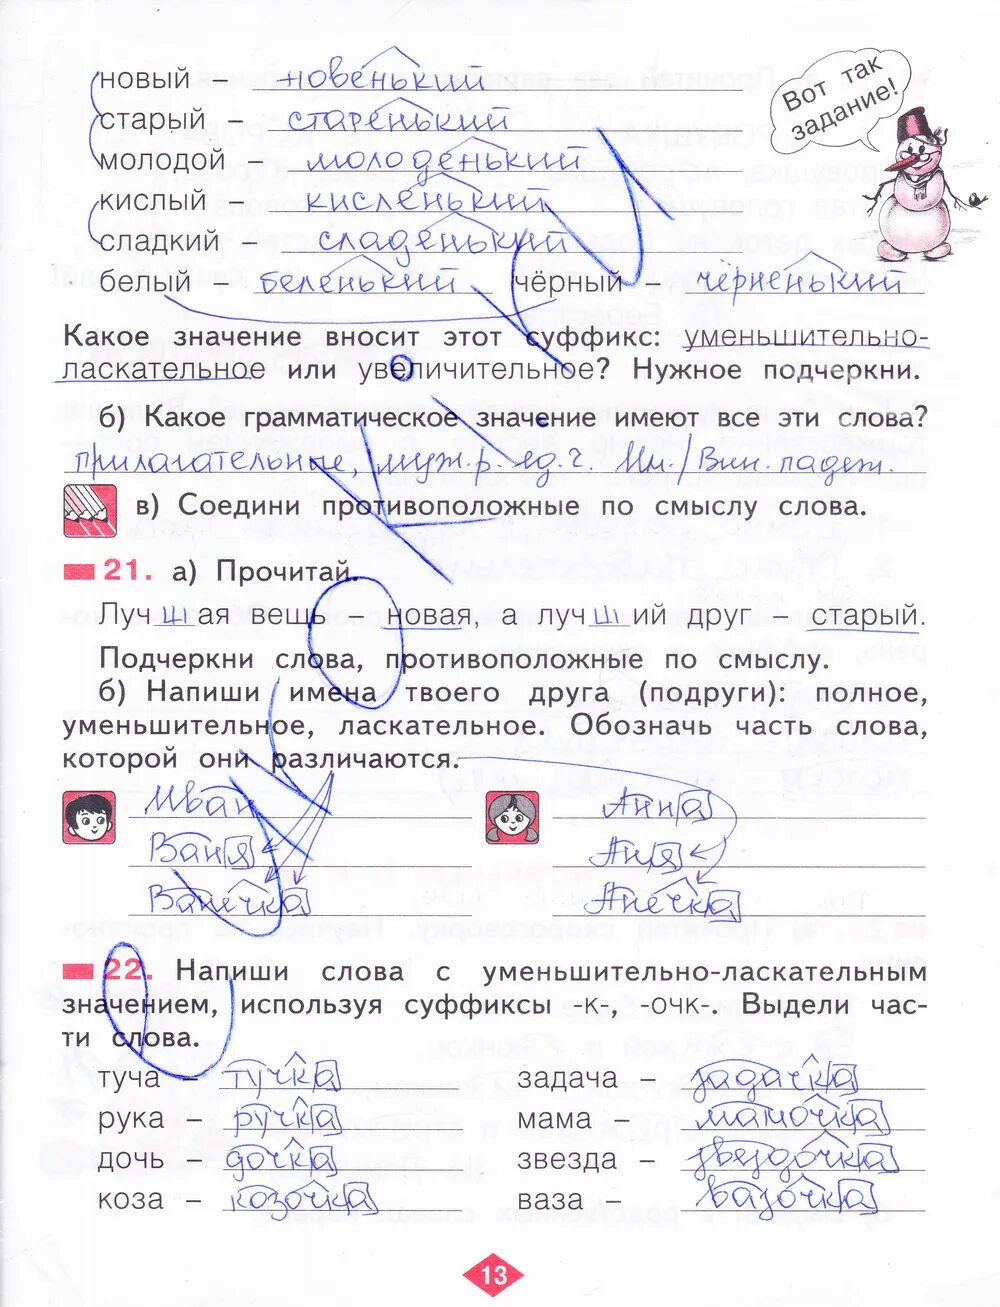 новый – новенький
Вот так
задание!
старый – старенький
молодой – молоденький
кислый – кисленький
сладкий – сладенький
белый – беленький чёрный – чёрненький
Какое значение вносит этот суффикс: уменьшительно-
ласкательное или увеличительное? Нужное подчеркни.
б) Какое грамматическое значение имеют все эти слова?
прилагательные, муж.р. ед.ч. Им./Вин. падеж.
в) Соедини противоположные по смыслу слова.
21. а) Прочитай.
Луч ш ая вещь – новая, а луч ш ий друг – старый.
Подчеркни слова, противоположные по смыслу.
б) Напиши имена твоего друга (подруги): полное,
уменьшительное, ласкательное. Обозначь часть слова,
которой они различаются.
Иван Анна
Ваня Аня
Ванечка Анечка
22. Напиши слова с уменьшительно-ласкательным
значением, используя суффиксы -к-, -очк-. Выдели час-
ти слова.
туча – тучка задача – задачка
рука – ручка мама – мамочка
дочь – дочка звезда – звездочка
коза – козочка ваза – вазочка
13